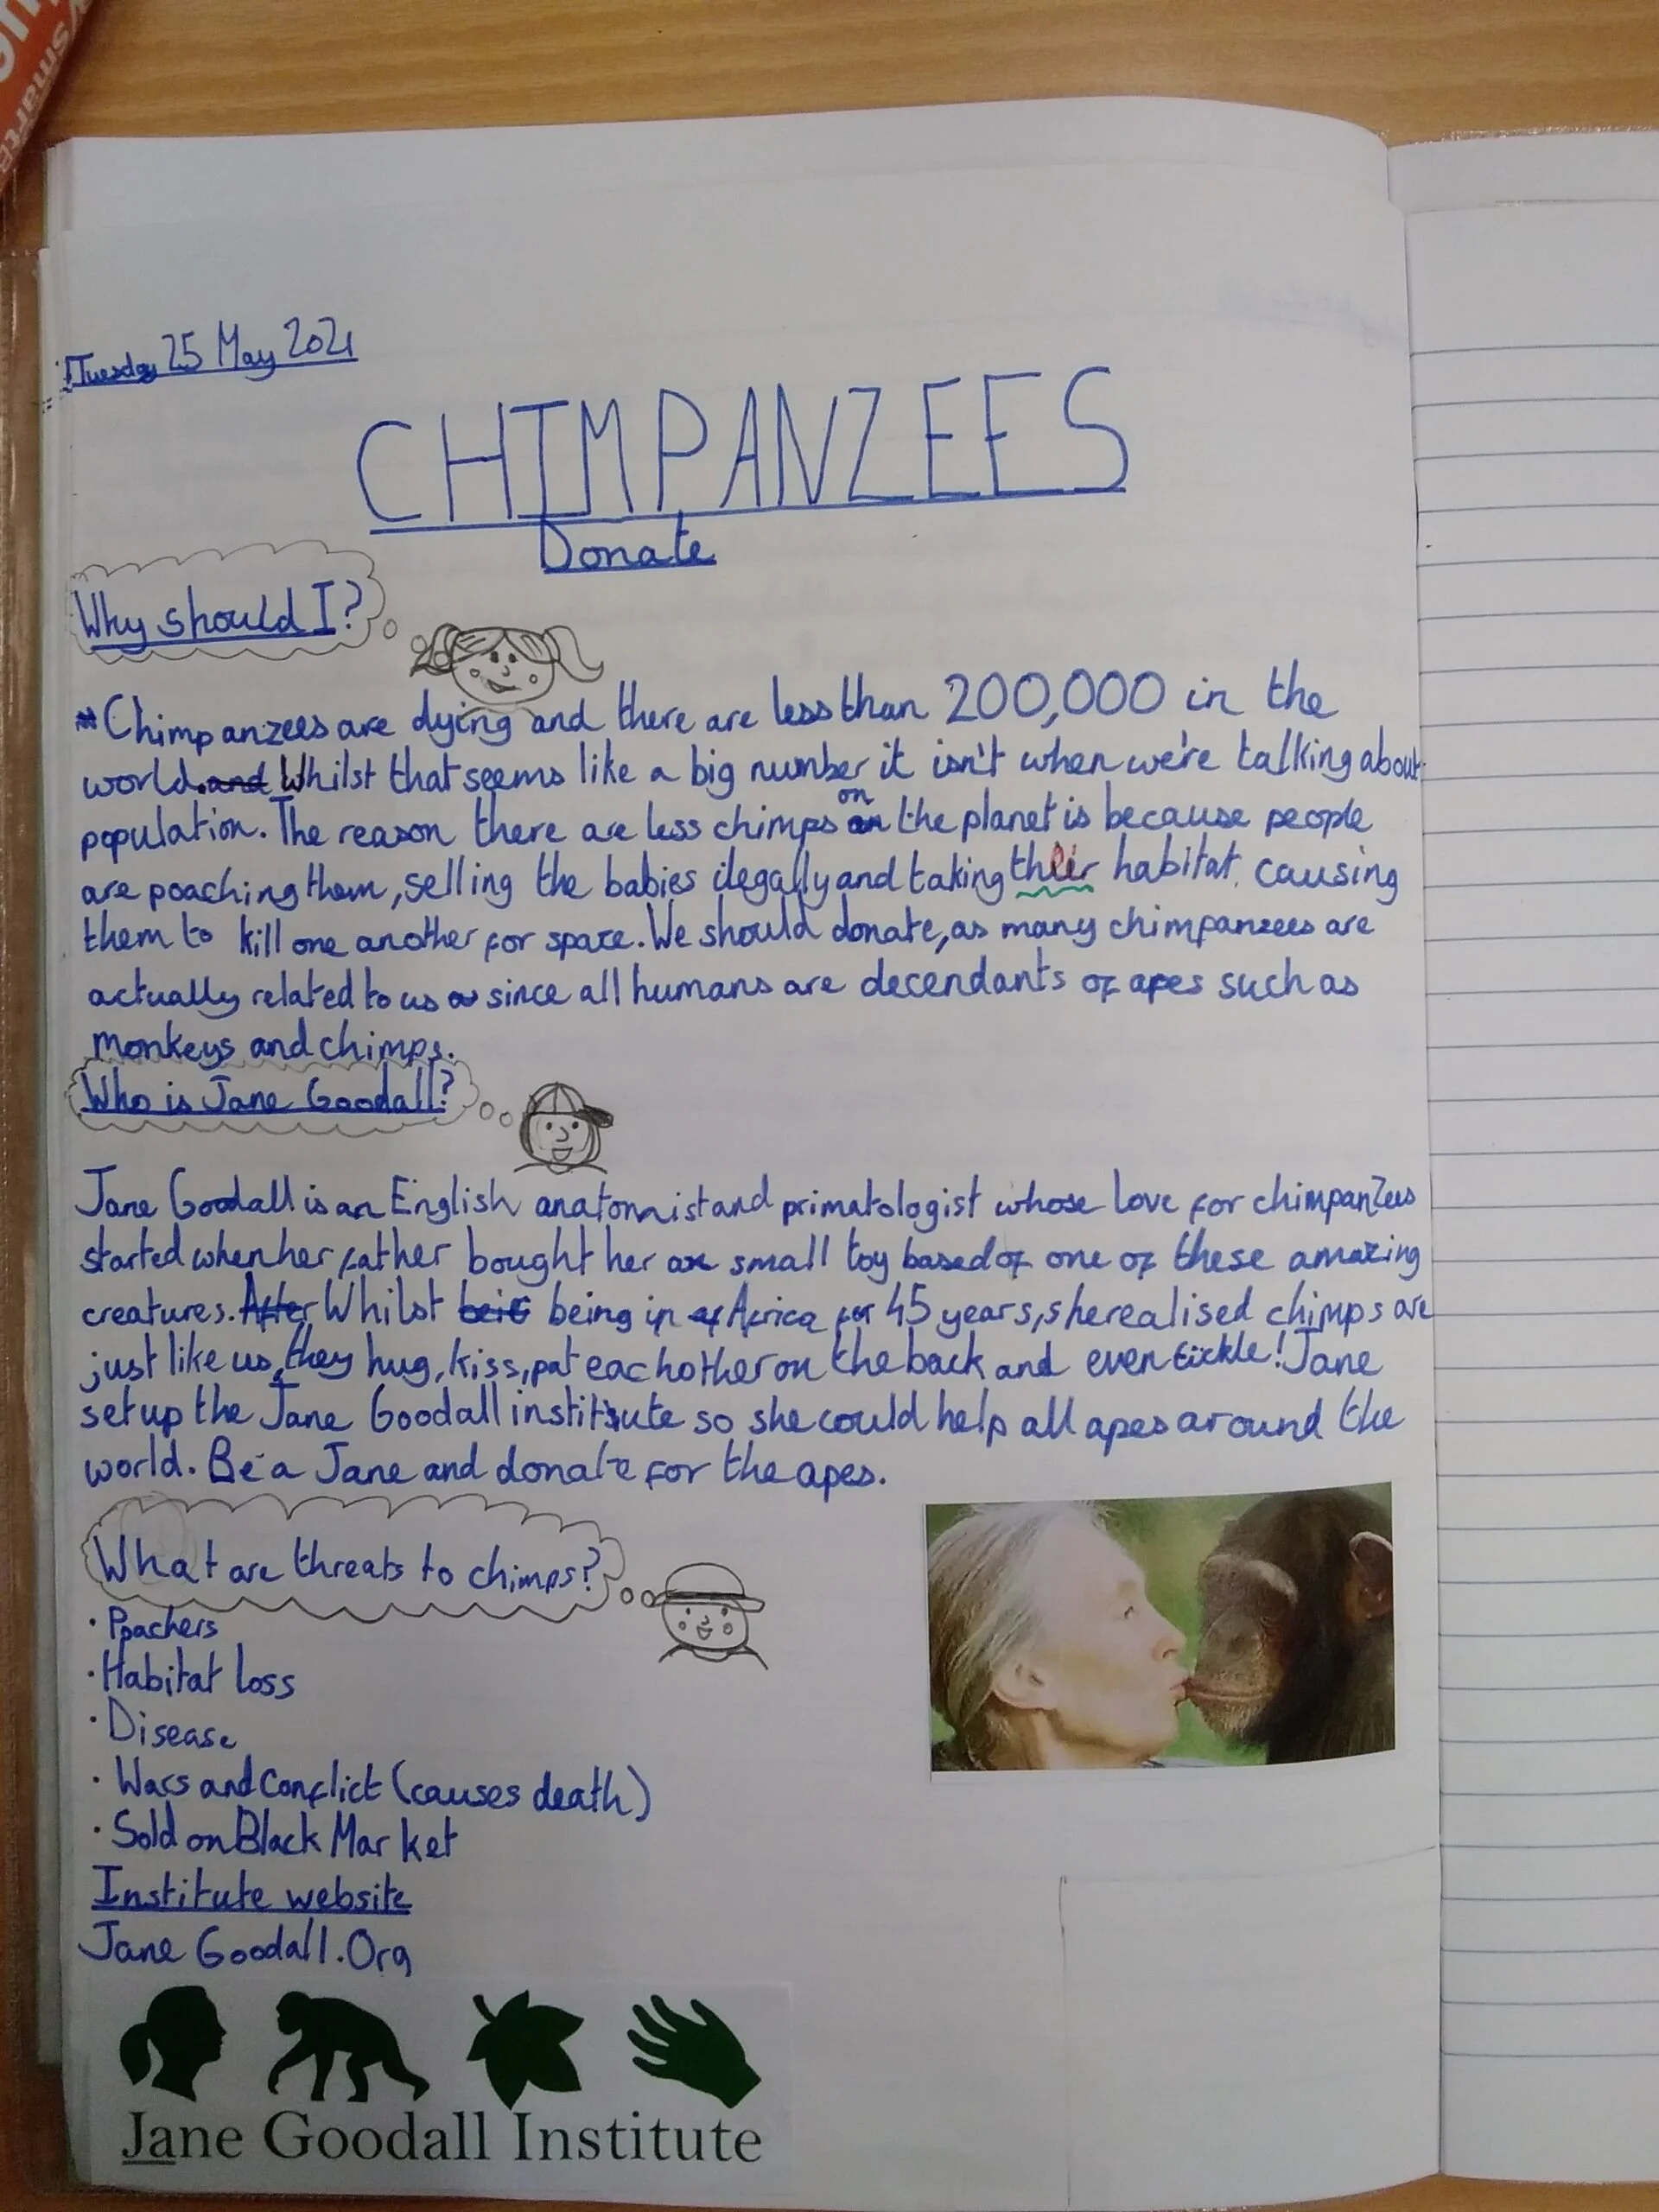 Tuesday 25 May 2021
CHIMPANZEES
Donate
Why should I?
Chimpanzees are dying and there are less than 200,000 in the
world. and Whilst that seems like a big number it isn't when we're talking about
population. The reason there are less chimps on the planet is because people
are poaching them, selling the babies ilegally and taking their habitat, causing
them to kill one another for space. We should donate, as many chimpanzees are
actually related to us since all humans are decendants of apes such as
monkeys and chimps.
Who is Jane Goodall?
Jane Goodall is an English anatomist and primatologist whose love for chimpanzees
started when her father bought her a small toy based of one of these amazing
creatures. After Whilst being in Africa for 45 years, she realised chimps are
just like us, they hug, kiss, pat each other on the back and even tickle! Jane
set up the Jane Goodall institute so she could help all apes around the
world. Be a Jane and donate for the apes.
What are threats to chimps?
· Poachers
· Habitat loss
· Disease
· Wars and Conflict (causes death)
· Sold on Black Market
Institute website
Jane Goodall.Org
Jane Goodall Institute